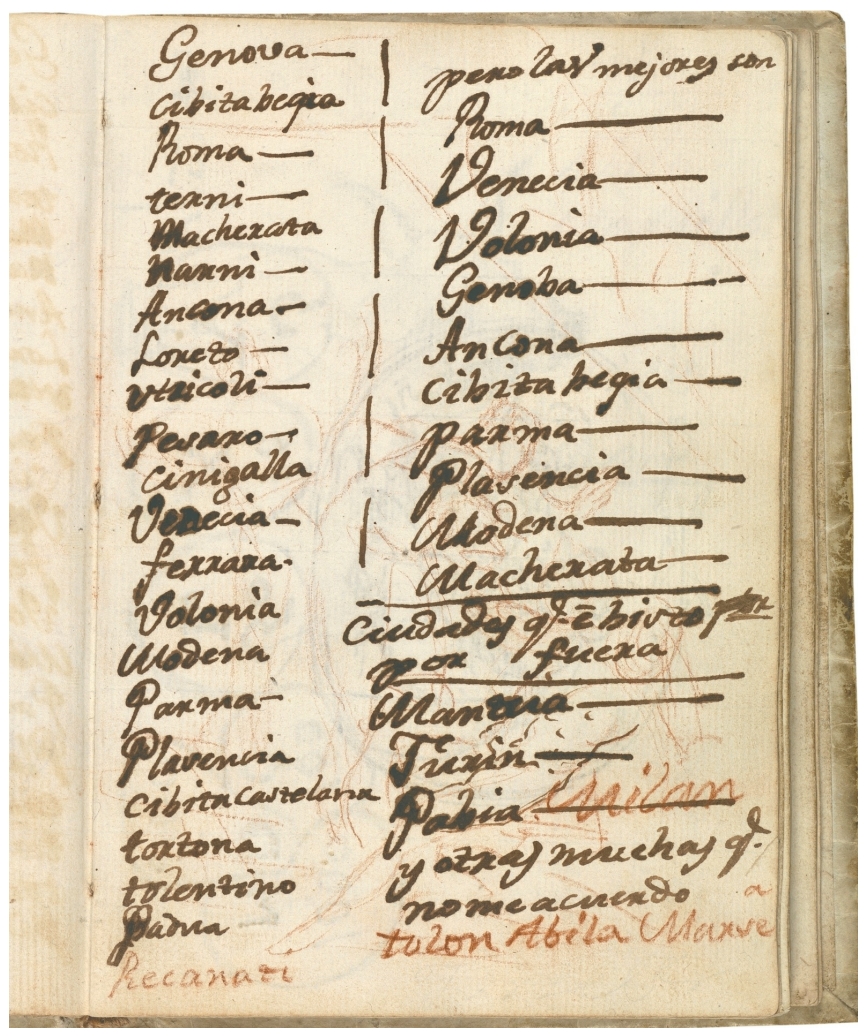 Genova
Cibitabegia
Roma
terni
Macherata
Narni
Ancona
Loreto
Utricoli
Pesaro
Cinigalla
Venecia
ferrara.
Volonia
Modena
Parma
Plasencia
Cibita Castelana
tortona
tolentino
Padua
Recanati
pero las mejores son
Roma
Venecia
Volonia
Genoba
Ancona
Cibita begia
parma
Plasencia
Modena
Macherata
Ciudades q.e ē bisto por
por fuera
Mantua
Turin
Pabia Milan
y otras muchas q.e
no me acuerdo
tolon Abila Marse
a